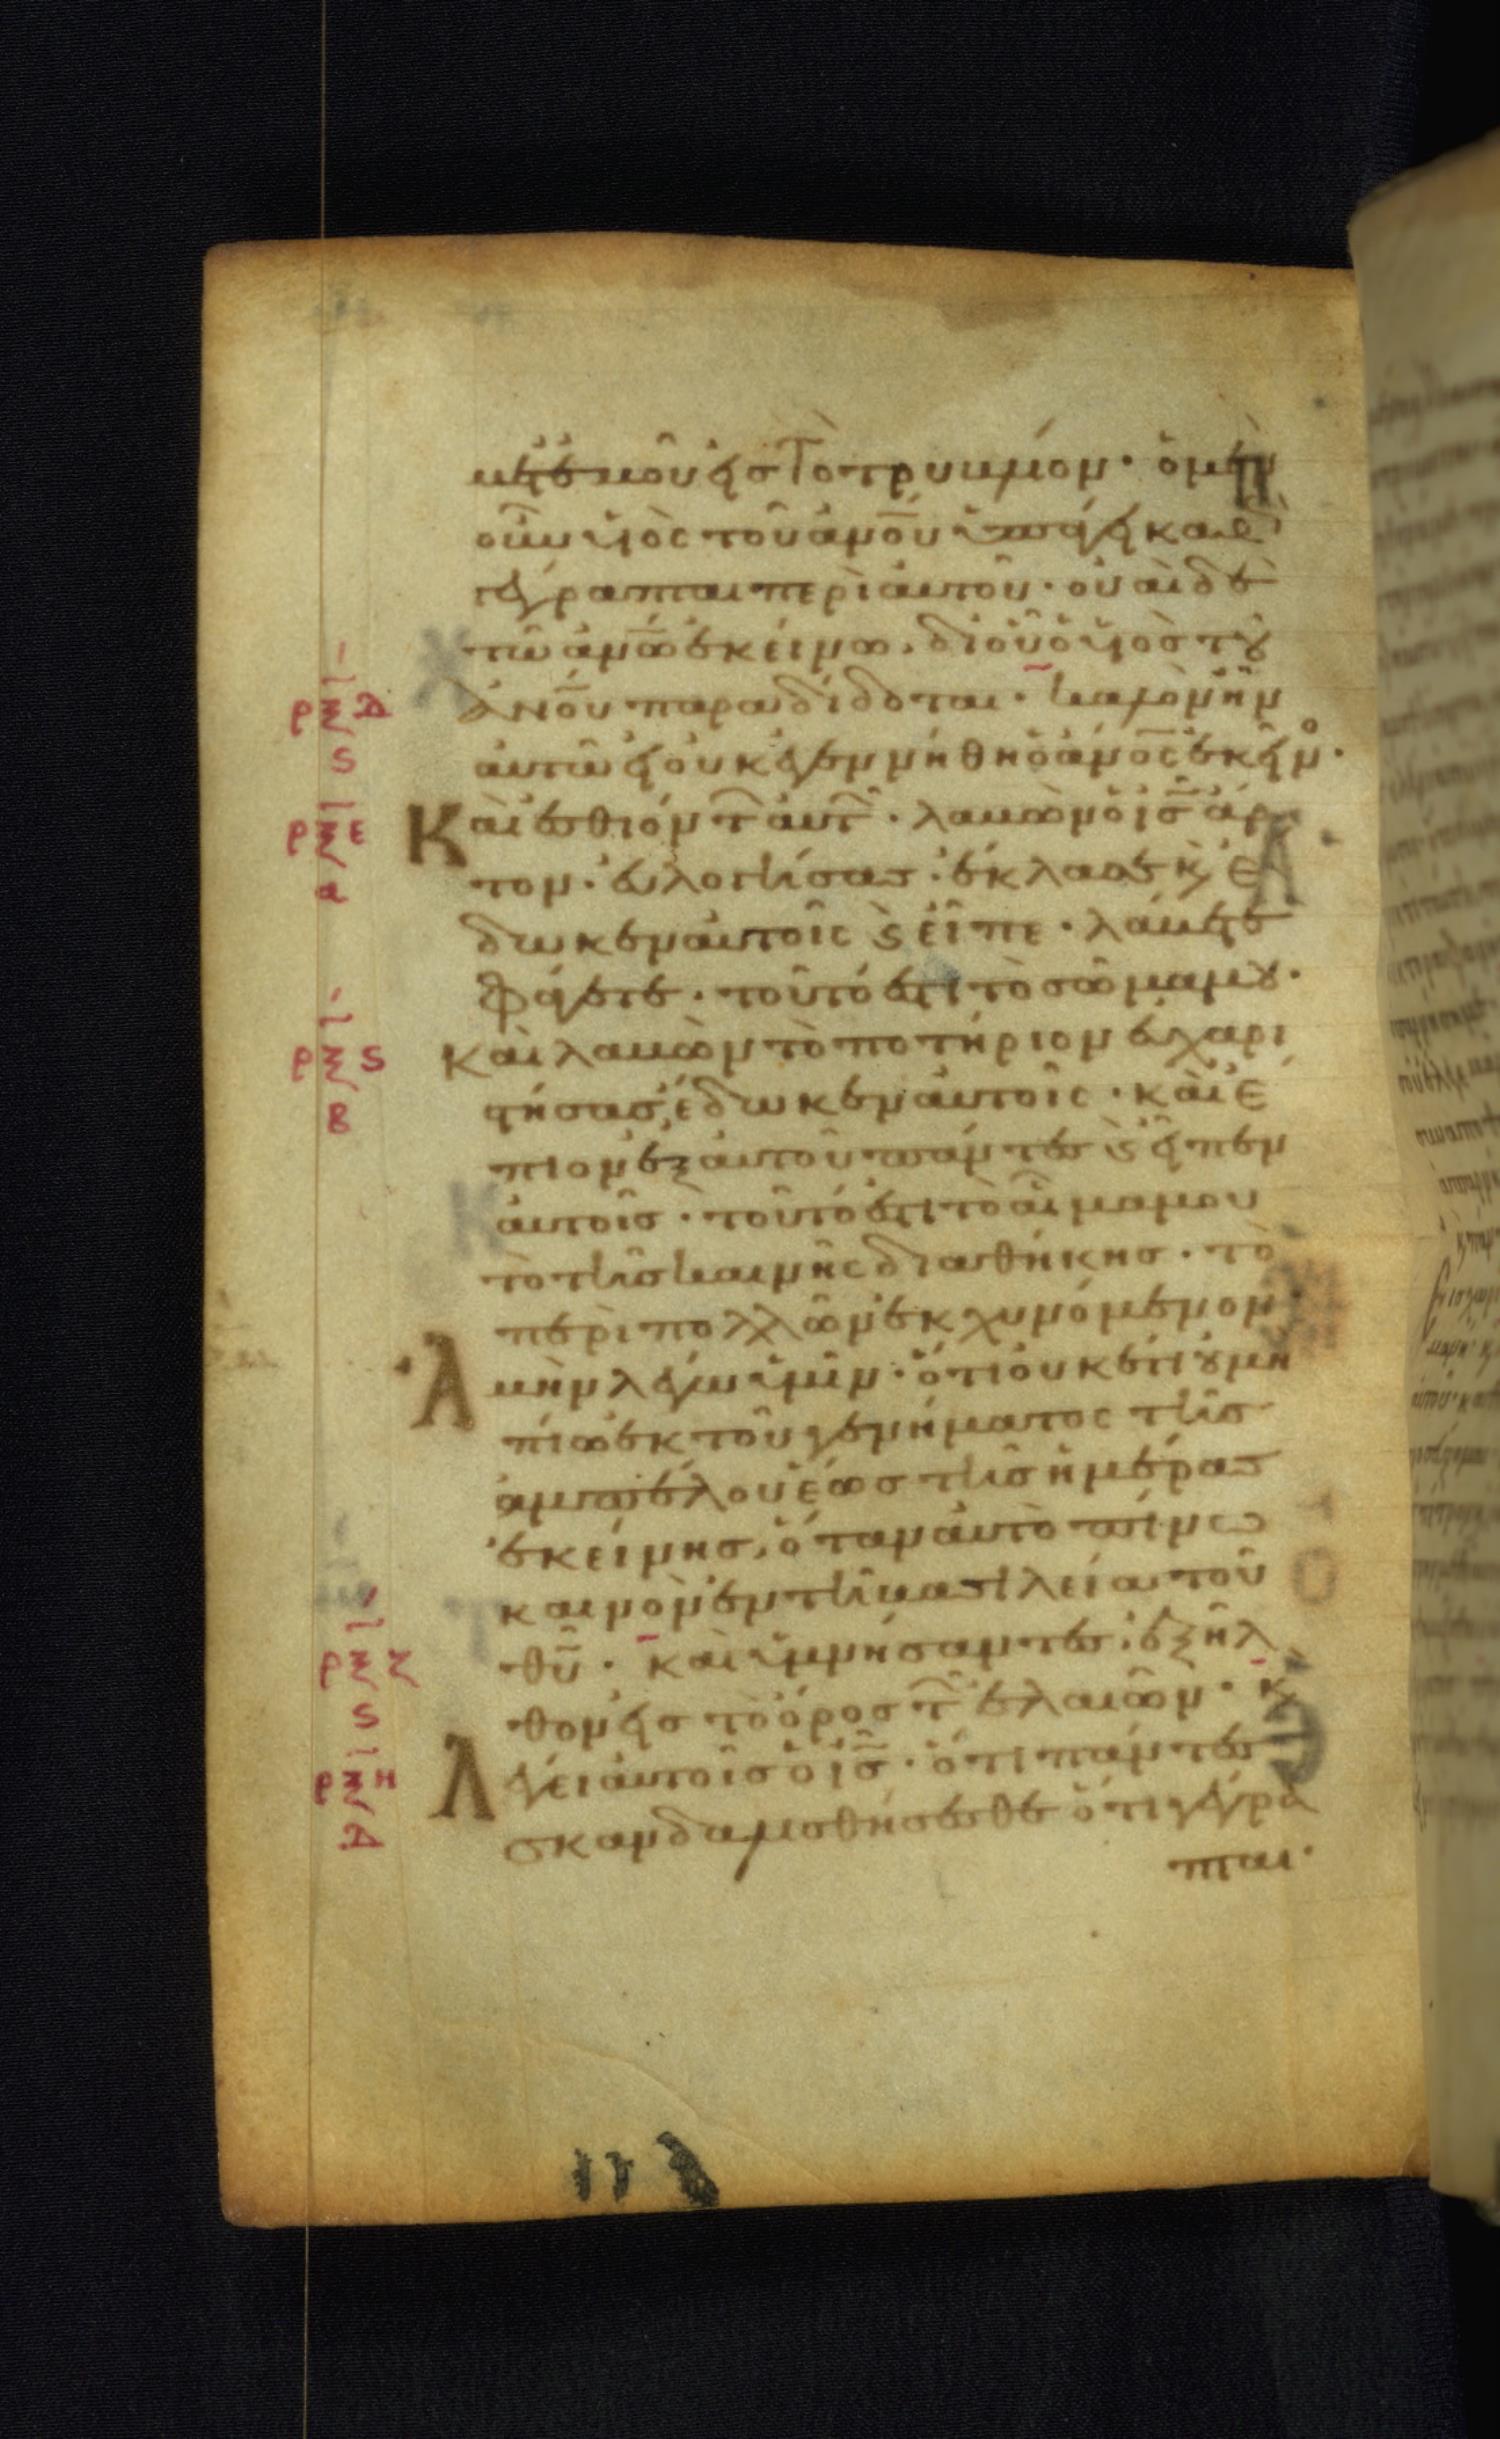 μετ' ἐμοῦ εἰς τὸ τρυβλίον· ὁ μὲν
οὖν υἱὸς τοῦ ἀν̅ο̅υ̅ ὑπάγει καθὼ
γέγραπται περὶ αὐτοῦ· οὐαὶ δὲ
τῶ ἀν̅ω̅ ἐκείνω, δι' οὗ ὁ υἱὸς τȣ
ἀν̅ο̅υ̅ παραδίδοται· καλὸν ἦν
αὐτῶ εἰ οὐκ ἐγεννήθη ὁ ἀν̅ο̅ς̅ ἐκεῖνο·
ρξδ
ς
Καὶ ἐσθιόντ αὐτ· λαβὼν ὁ ι̅ς̅ ἄρ
ρξε
α
τον· εὐλογήσας· ἔκλασε κ ἔ
δωκεν αὐτοῖς ϗ εἶπε· λάβετε
φάγετε· τοῦτό ἐστι τὸ σῶμα μȣ·
Καὶ λαβὼν τὸ ποτήριον εὐχαρι
ρξς
β
στήσας, ἔδωκεν αὐτοῖς· καὶ ἔ
πιον ἐξ αὐτοῦ πάντες ϗ εἶπεν
αὐτοῖς· τοῦτό ἐστι τὸ αἷμα μου
τὸ τῆς καινῆς διαθήκης· τὸ
περὶ πολλῶν ἐκχυνόμενον·
Ἀμὴν λέγω ὑμῖν· ὅτι οὐκέτι ȣ μὴ
πίω ἐκ τοῦ γενήματος τῆς
ἀμπέλου ἕως τῆς ἡμέρας
ἐκείνης, ὅταν αὐτὸ πίνω
καινὸν ἐν τῆ βασιλεία τοῦ
θ̅υ̅· Καὶ ὑμνήσαντες, ἐξῆλ
ρξζ
ς
θον εἰς τὸ ὄρος τ ἐλαιῶν· κ
Λέγει αὐτοῖς ὁ ι̅ς̅· ὅτι πάντες
ρξη
δ
σκανδαλισθήσεσθε ὅτι γέγρα
πται·